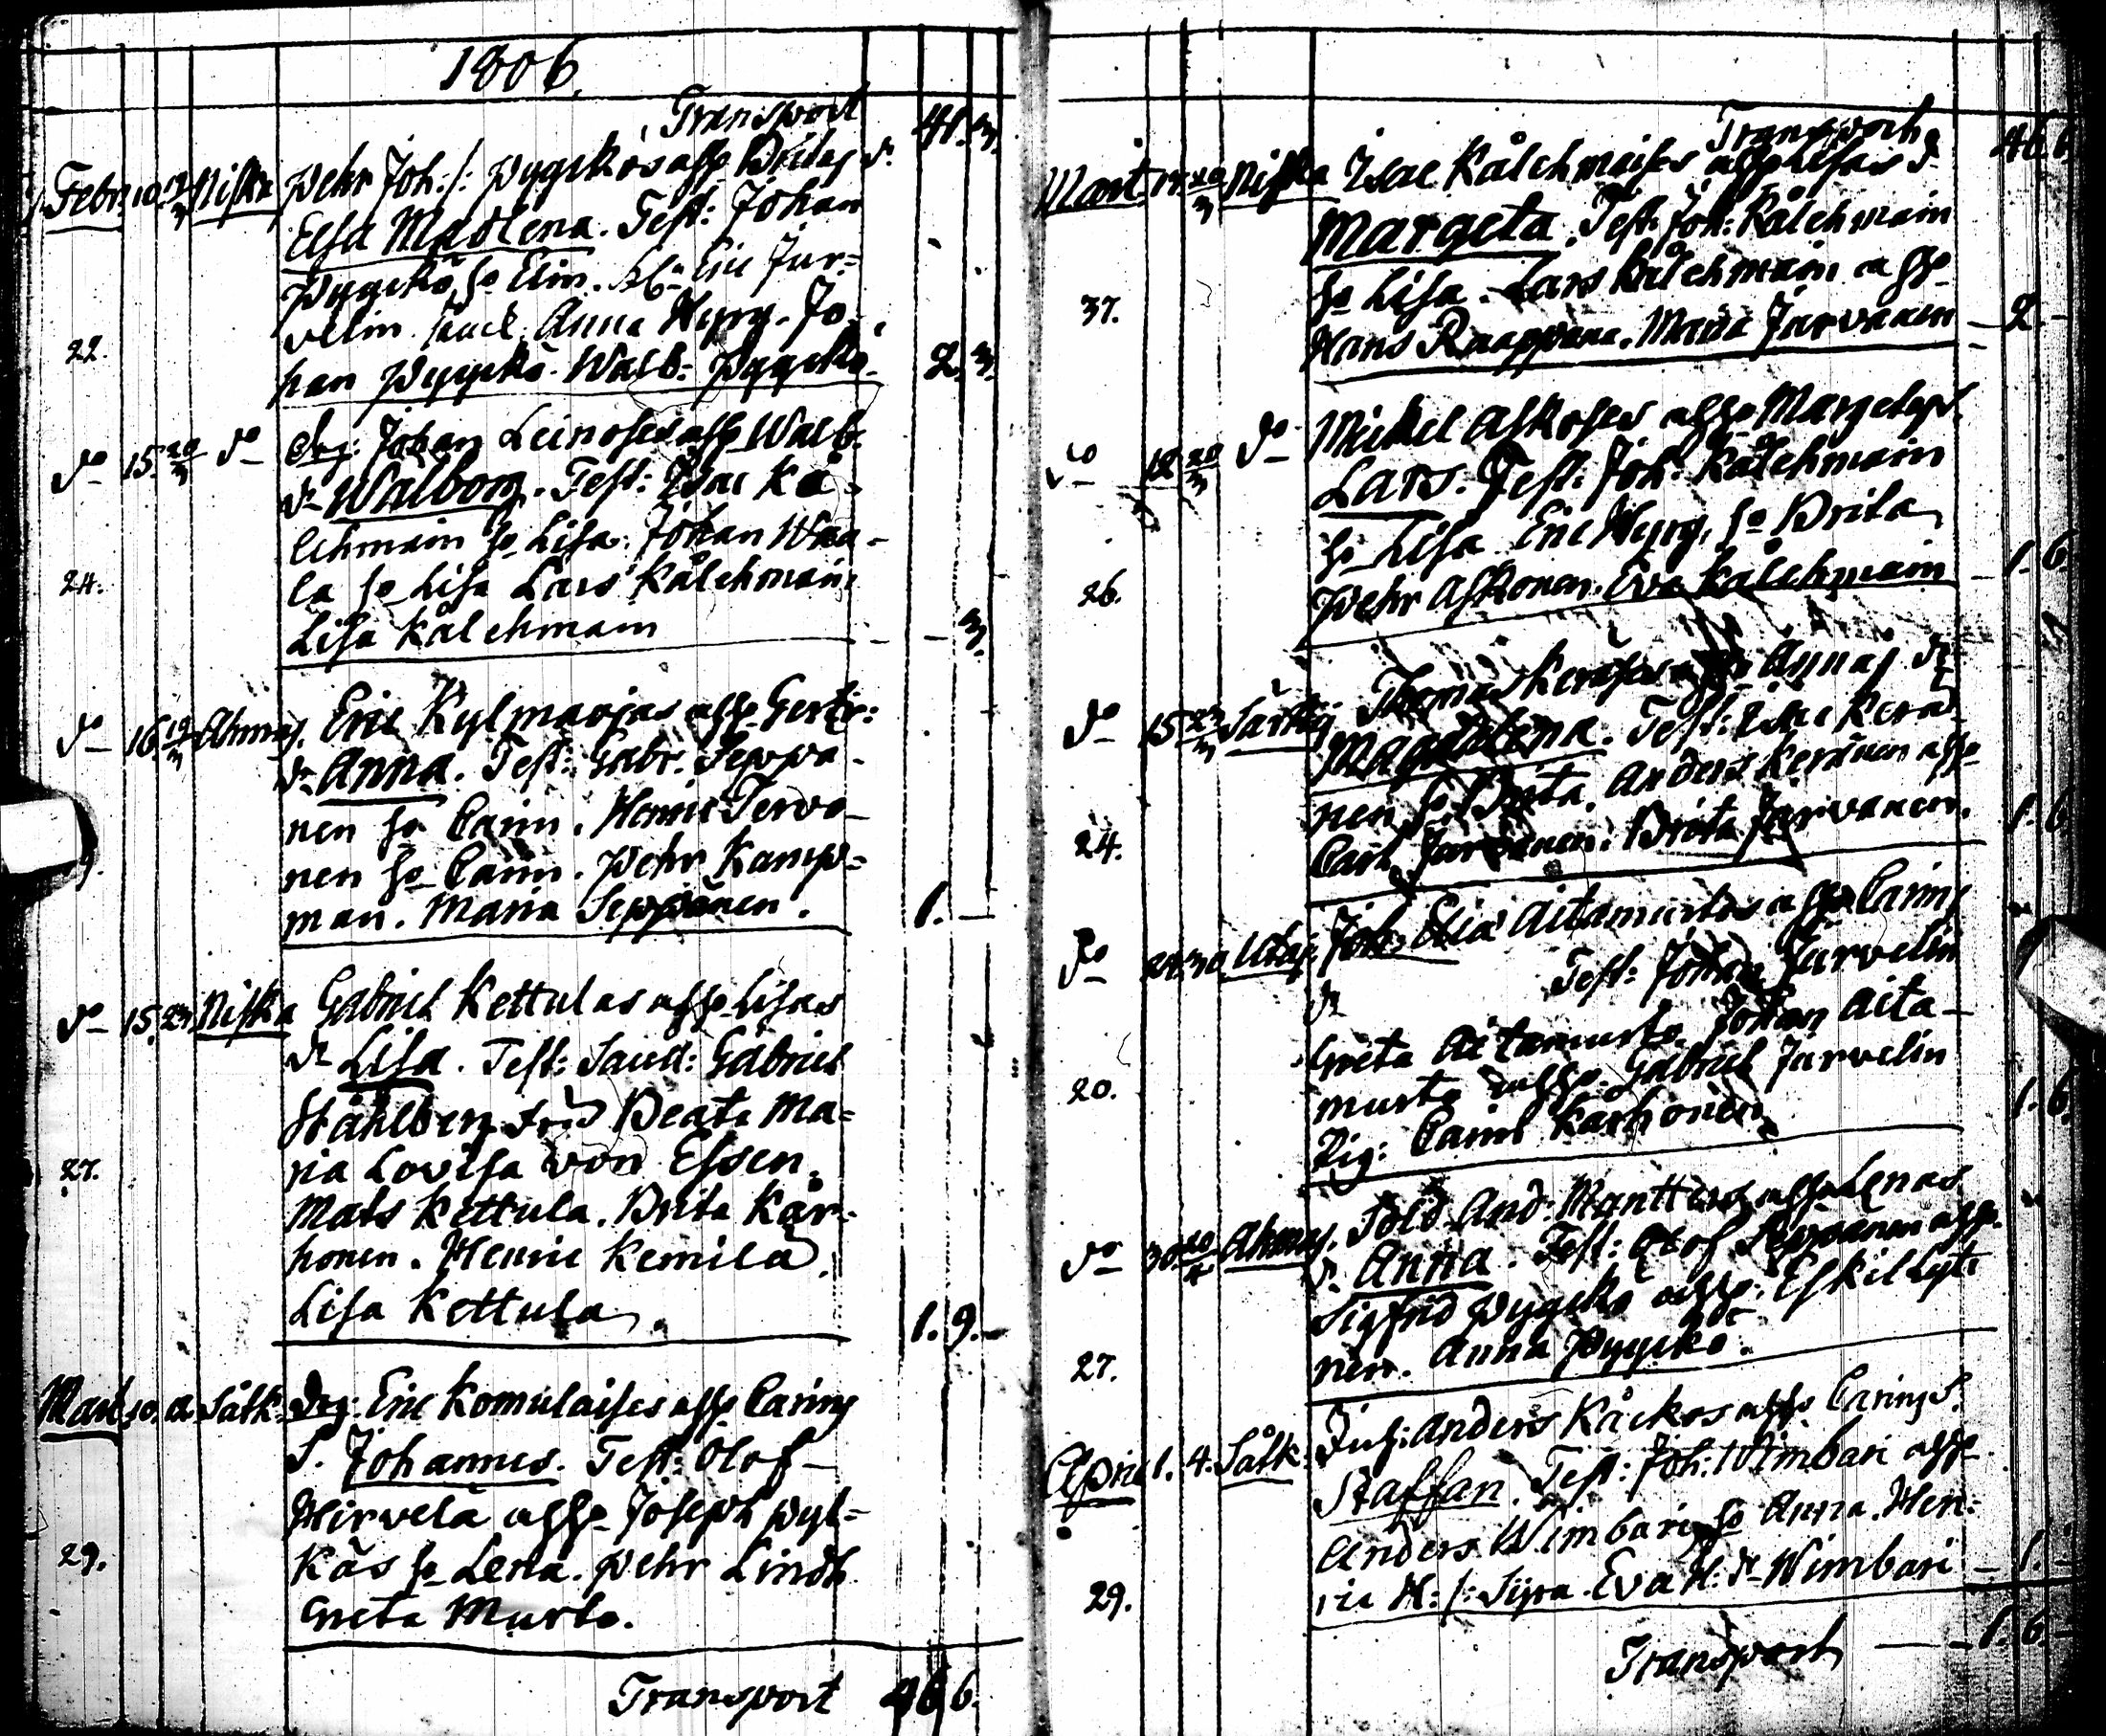 1806.
Transport 41. 3.
Febr. 10. 12/3 Niska Pehr Joh: s: Pyyckös afh Britas d.
Elsa Madlena. Test: Johan
Pyyckö, ho Elin. Eric Jur=
velin Anna Hyry. Jo-
22. han Pyyckö. Walb: Pyyckö. 2. 3.
do 15. 20/3 do Drg: Johan Leinoses afh Walb.
dr Walborg. Test: Isac Kå-
lchmain ho Lisa. Johan Waa-
24. la ho Lisa Lars Kålchmain
Lisa Kålchmain - 3.
do 16. 19/3 Ahmas. Eric Kylmaojas afh. Gertr:
dr Anna. Test: Gabr. Seppä-
nen ho Carin. Henric Tervo-
nen ho Carin. Pehr Kamp=
man. Maria Seppänen. 1. -
do 15. 23. Niska Gabriel Kettulas afh Lisas
dr Lisa. Test: Gabriel
Ståhlberg Beata Ma=
27. ria Lovisa von Essen.
Mats Kettula. Brita Kär-
honen. Henric Kemilä.
Lisa Kettula. 1. 9. -
Mart. 10. Såtk: Drg: Eric Komulaises afh. Carins
S. Johannes. Test: Olof
Hirvelä afh Joseph Pyl=
29. käs ho Lena. Pehr Lindh
Greta Murto.
Transport 46 6.
Transport 46. 6.
Mart. 17. 20/3 Niska Isac Kålchmaises afh Lisas d.
Margeta. Test: Joh: Kålchmain
37. ho Lisa. Lars Kålchmain afh
Hans Raappana. Maria Järvanen - 2. -
do 18 20/3 do Mickel Askoses afh Margetas
Lars. Test: Joh: Kålchmain
ho Lisa Eric Hyry, ho Brita
26. Pehr Askonen. Eva Kålchmain - 1. 6.
do 15 23/3 Särkij Thomas Keräses afh Annas dr
Magdalena. Test: Isac Kerä-
nen ho Brita. Anders Keränen afh
24. Carl Jurvanen. Brita Järvanen. 1. 6.
do 24. 30 Utaj. Joh: Elia Aitamurtos afh Carins
dr Test: Johan Jurvelin
Greta Aitamurto. Johan Aita-
20. murto afh. Gabriel Jurvelin
Pig: Carin Kärhonen 1. 6.
do 30 20/4 Ahmas. Sold. And: Manttus afh Lenas
d. Anna. Test: Olof Seppänen afh.
Sigfrid Pyyckö afh: Eskil Lyti
27. nen. Anna Pyyckö.
April 1. 4. Såtk: Anders Kåckos afh Carins S.
Staffan. Test: Joh: Wimbari afh
Anders Wimbari, ho Anna. Hen=
29. ric H: s: Sipa. Eva H: dr Wimbari - 1. -
Transport - 1. 6. -